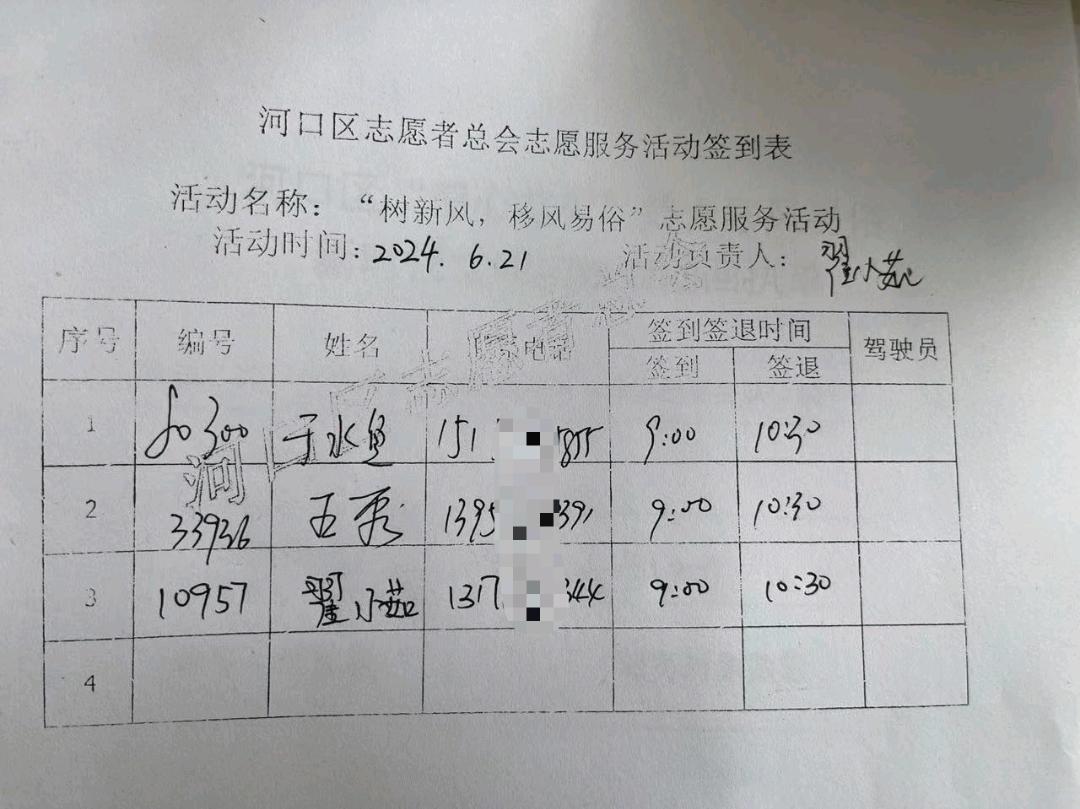 河口区志愿者总会志愿服务活动签到表
活动名称：“树新风，移风易俗”志愿服务活动
活动时间：2024. 6.21 活动负责人：翟小茹
序号 编号 姓名 电话 签到签退时间 驾驶员
签到 签退
1 于水 151 855 9:00 10:30
2 33936 王秀 1395 391 9:00 10:30
3 10957 翟小茹 1317 344 9:00 10:30
4
河口 志愿者总